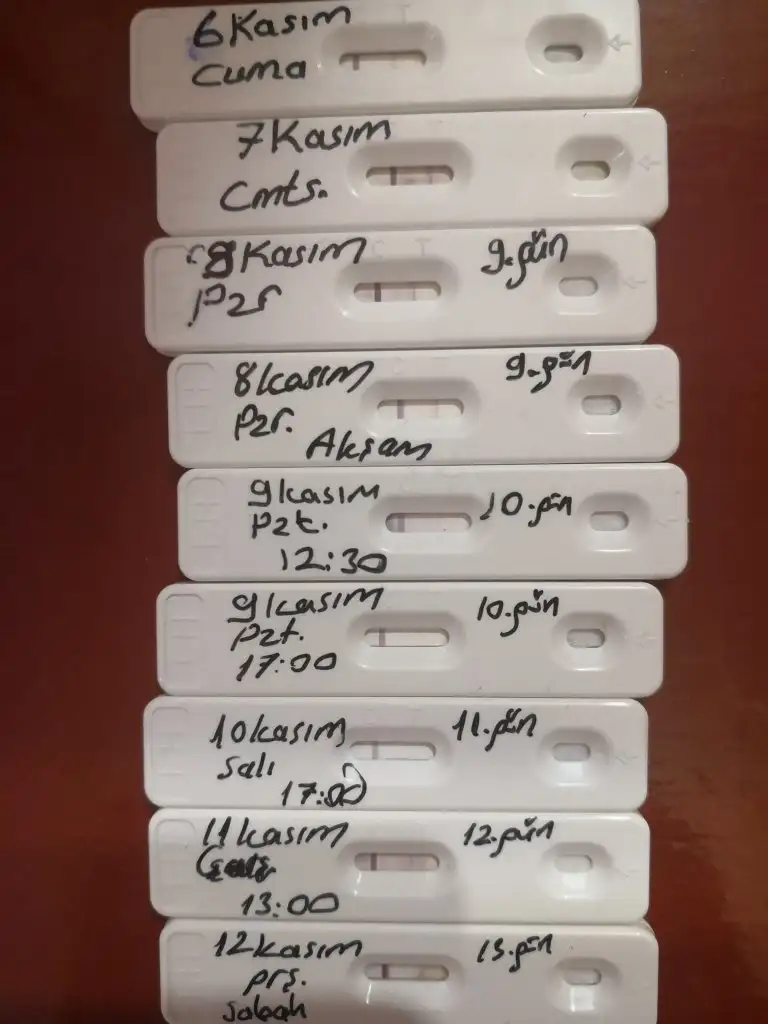 6 Kasım
Cuma
7 Kasım
Cmts.
C T
8 Kasım
9.gün
Pzr
8 kasım
9.gün
Pzr.
Akşam
9 kasım
10.gün
Pzt.
12:30
9 kasım
10.gün
Pzt.
17:00
10 kasım
11.gün
Salı
17:00
11 kasım
12.gün
13:00
12 kasım
13.gün
prş.
Sabah